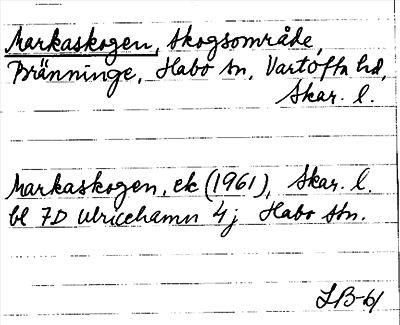 Markaskogen, skogsområde,
Bränninge, Habo sn, Vartofta hd,
Skar. l.
Markaskogen, ek (1961), Skar. l.
bl 7D Ulricehamn 4j Habo stn.